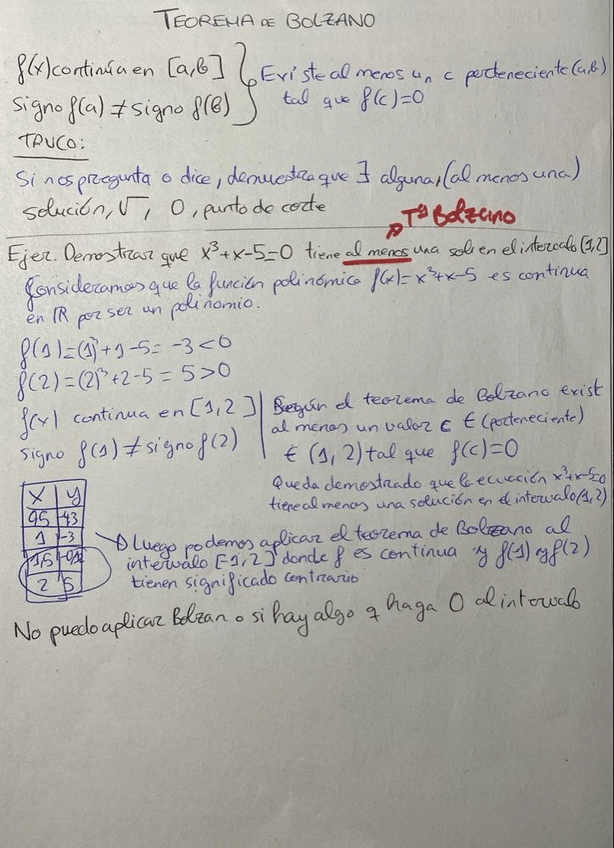 TEOREMA DE BOLZANO
f(x) continúa en [a,b] } Existe al menos un c perteneciente (a,b)
signo f(a) ≠ signo f(b) } tal que f(c)=0
TRUCO:
Si nos pregunta o dice, demuestra que ∃ alguna, (al menos una)
solución, √, 0, punto de corte
Tª Bolzano
Ejer. Demostrar que x³+x-5=0 tiene al menos una sol en el intervalo [1,2]
Consideramos que la función polinómica f(x)=x³+x-5 es continua
en ℝ por ser un polinomio.
f(1)=(1)³+1-5=-3<0
f(2)=(2)³+2-5=5>0
f(x) continua en [1,2]
signo f(1) ≠ signo f(2)
Según el teorema de Bolzano exist
al menos un valor c ∈ (perteneciente)
∈ (1,2) tal que f(c)=0
Queda demostrado que la ecuación x³+x-5=0
tiene al menos una solución en el intervalo (1,2)
x y
1 -3
2 5
Luego podemos aplicar el teorema de Bolzano al
intervalo [1,2] donde f es continua y f(1) y f(2)
tienen significado contrario
No puedo aplicar Bolzano si hay algo q haga 0 al intervalo